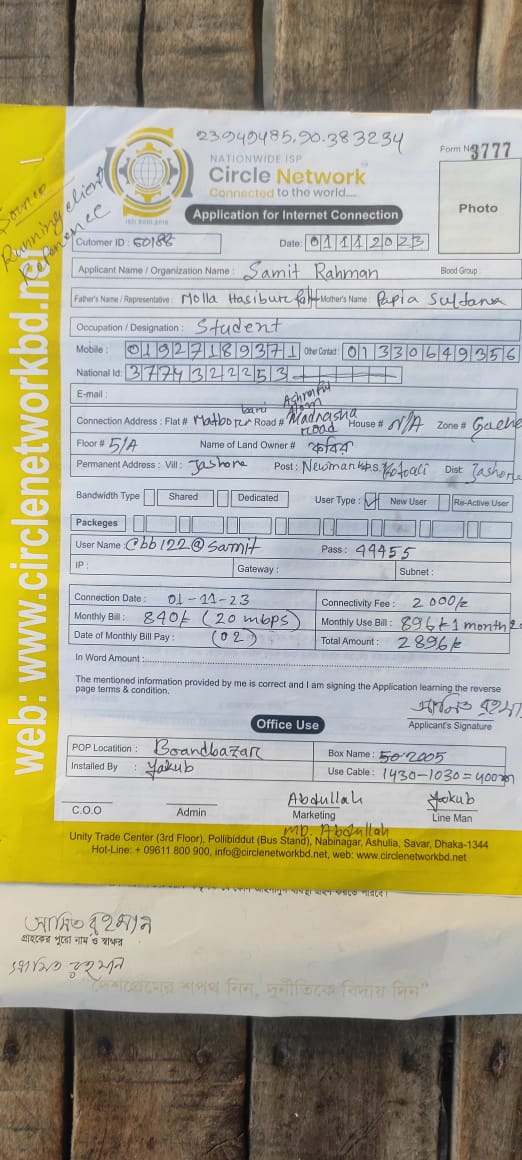 23949485.90.383234
NATIONWIDE ISP
Circle Network
Connected to the world....
ISO 9001:2015
Form No 3777
Source
Running client
Reference
Application for Internet Connection
Photo
Cutomer ID : 50188 Date: 01112023
Applicant Name / Organization Name : Samit Rahman Blood Group :
Father's Name / Representative : Molla Hasibur Mother's Name : Papia Sultana
Occupation / Designation : Student
Mobile : 01927189371 Other Contact : 01330649356
National Id: 3774322253
E-mail :
Connection Address : Flat # Matbor bari Road # Madrasha Road House # N/A Zone #
Floor # 5/A Name of Land Owner # কবির
Permanent Address : Vill : Jashore Post : Dist: Jashore
Bandwidth Type Shared Dedicated User Type : New User Re-Active User
Packeges
User Name : Cbb122@samit Pass : 44455
IP : Gateway : Subnet :
Connection Date : 01-11-23 Connectivity Fee : 2000/=
Monthly Bill : 840/= (20 mbps) Monthly Use Bill : 896/= 1 month
Date of Monthly Bill Pay : (02) Total Amount : 2896/=
In Word Amount :
The mentioned information provided by me is correct and I am signing the Application learning the reverse
page terms & condition.
Applicant's Signature
Office Use
POP Locatition : Boardbazar Box Name : 50-2005
Installed By : Yakub Use Cable : 1430-1030=400m
Abdullah Yakub
C.O.O Admin Marketing Line Man
MD. Abdullah
Unity Trade Center (3rd Floor), Pollibiddut (Bus Stand), Nabinagar, Ashulia, Savar, Dhaka-1344
Hot-Line: + 09611 800 900, info@circlenetworkbd.net, web: www.circlenetworkbd.net
web: www.circlenetworkbd.net
গ্রাহকের পুরো নাম ও স্বাক্ষর
"দেশপ্রেমের শপথ নিন, দুর্নীতিকে বিদায় দিন"